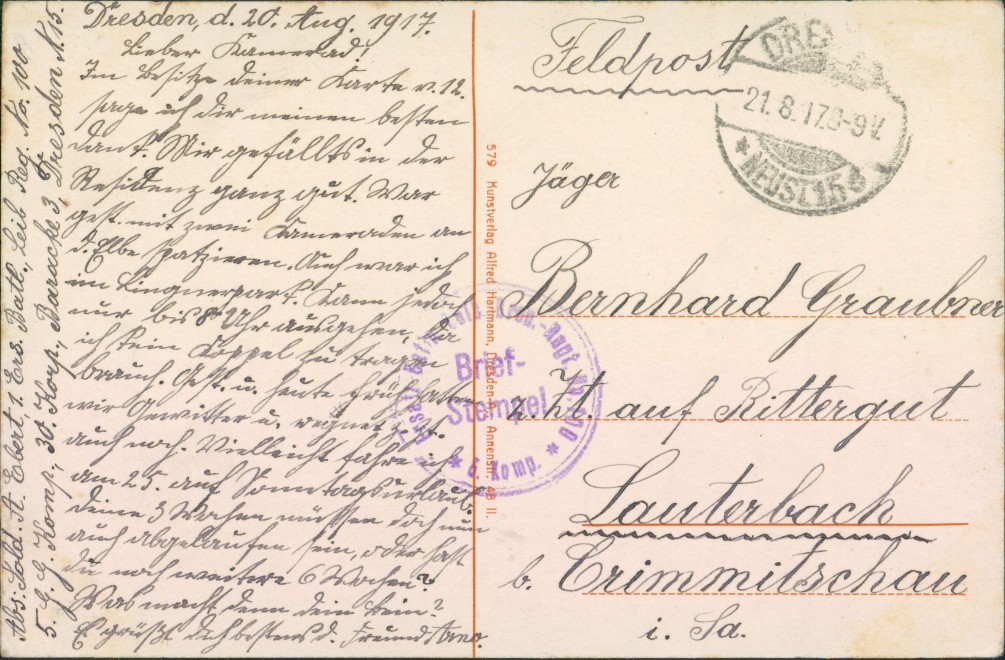 Dresden, d. 20. Aug. 1917.
Lieber Kamerad!
Im Besitze deiner Karte v. 12.
sage ich dir meinen besten
Dank. Mir gefällts in der
Residenz ganz gut. War
gest. mit zwei Kameraden an
d. Elbe spazieren. Auch war ich
im Lingnerpark. Kann jedoch
nur bis 8 Uhr ausgehen, da
ich kein Koppel zu tragen
brauch. Gest. u. heute früh hatten
wir Gewitter u. regnet jetzt
auch noch. Vielleicht fahre ich
am 25. auf Sonntagsurlaub.
Deine 3 Wochen müssen doch nun
auch abgelaufen sein, oder hast
du noch weitere 6 Wochen?
Was macht denn dein Bein?
Es grüßt dich bestens d. Freund Arno.
Abs: Sold. A. Ebert, 1. Ers. Batl., Leib Reg. No. 100
5. G. Komp., 30. Korp., Baracke 3, Dresden N. 15.
579 Kunstverlag Alfred Hartmann, Dresden-A., Annenstr. 48 II.
Feldpost
DRE
21.8.17.8-9V.
* NEUST. 15 *
Jäger
Bernhard Graubner
z. Zt. auf Rittergut
Lauterbach
b. Crimmitschau
i. Sa.
Brief-
Stempel
* 5. Komp. *